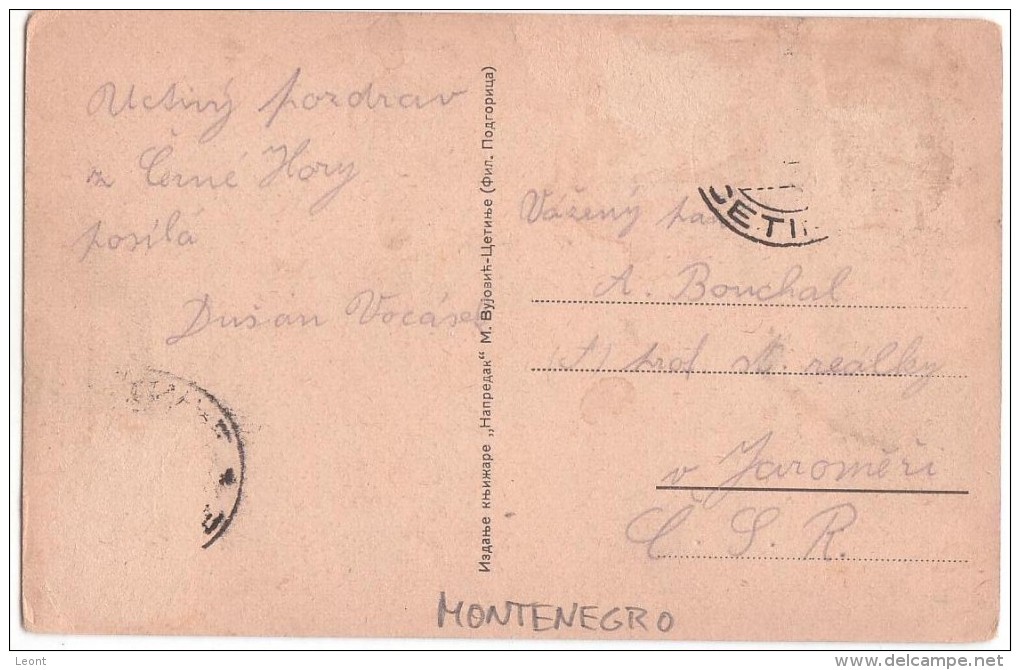 Uctivý pozdrav
z Černé Hory
posílá
Dušan Vocásek
Издање књижаре „Напредак“ М. Вујовић-Цетиње (Фил. Подгорица)
Vážený pan
CETI
A. Bouchal
prof. st. reálky
v Jaroměři
Č. S. R.
MONTENEGRO
Leont
delcampe.net